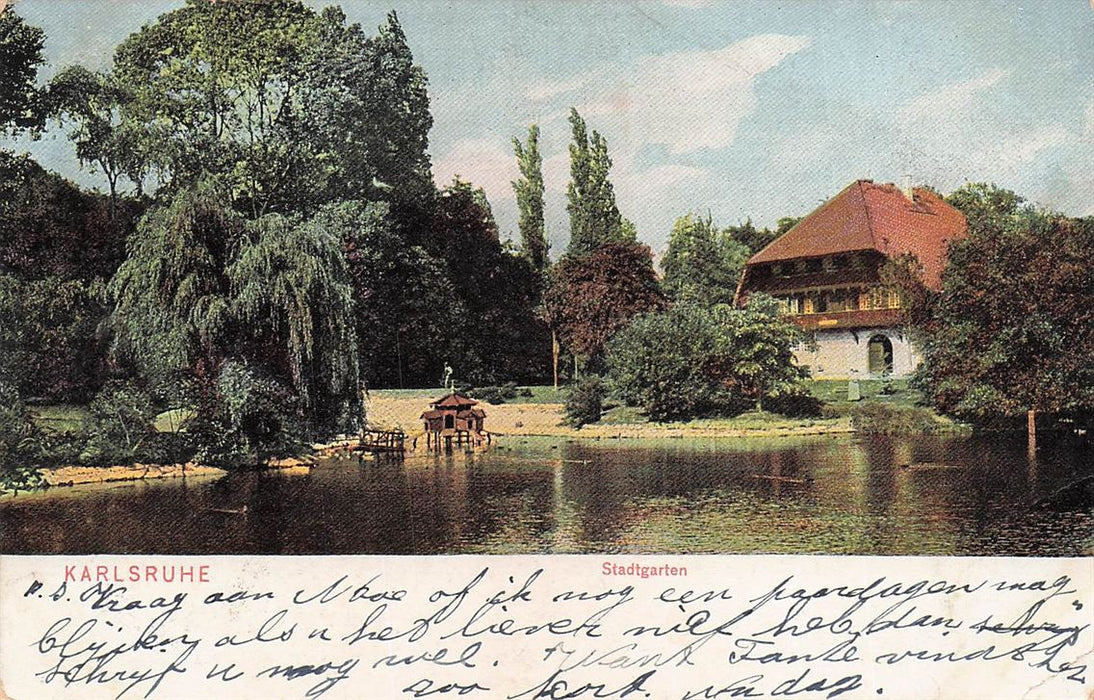 KARLSRUHE
Stadtgarten
P.S. Vraag aan Moe of ik nog een paar dagen mag
blijven als u het liever niet heb dan
schryf u nog wel. Want Tante vind het
zoo kort. Vrydag.